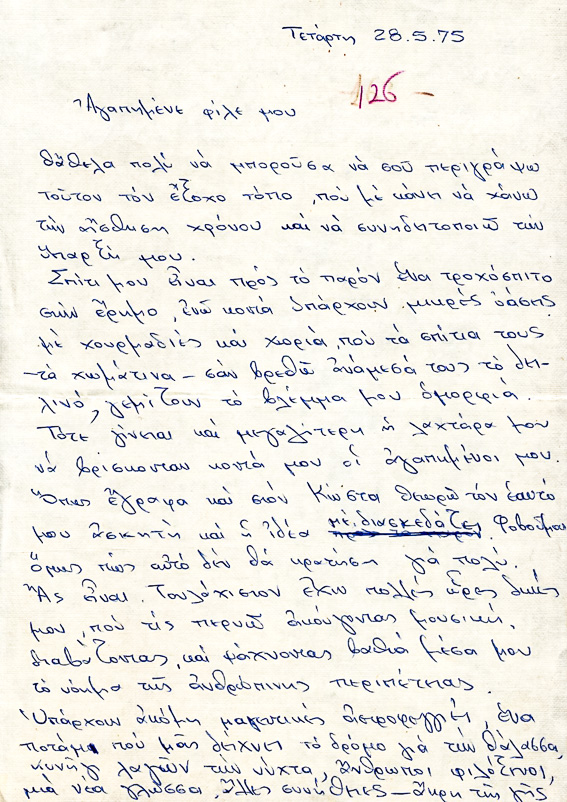 Τετάρτη 28.5.75
126 -
Ἀγαπημένε φίλε μου
θἄθελα πολύ νά μποροῦσα νά σοῦ περιγράψω
τοῦτον τόν ἔξοχο τόπο, πού μέ κάνει νά χάνω
τήν αἴσθηση χρόνου καί νά συνηδητοποιῶ τήν
ὕπαρξή μου.
Σπίτι μου εἶναι πρός τό παρόν ἕνα τροχόσπιτο
στήν ἔρημο, ἐνῶ κοντά ὑπάρχουν μικρές ὀάσεις
μέ χουρμαδιές καί χωριά, πού τά σπίτια τους
-τά χωμάτινα - σάν βρεθῶ ἀνάμεσά τους τό δει-
λινό, γεμίζουν τό βλέμμα μου ὀμορφιά.
Τότε γίνεται καί μεγαλύτερη ἡ λαχτάρα μου
νά βρίσκονταν κοντά μου οἱ ἀγαπημένοι μου.
Ὅπως ἔγραψα καί στόν Κώστα θεωρῶ τόν ἑαυτό
μου ἀσκητή καί ἡ ἰδέα μέ διασκεδάζει. Φοβοῦμαι
ὅμως πώς αὐτό δέν θά κρατήση γιά πολύ.
Ἄς εἶναι. Τουλάχιστον ἔχω πολλές ὧρες δικές
μου, πού τίς περνῶ ἀκούγοντας μουσική,
διαβάζοντας, καί ψάχνοντας βαθιά μέσα μου
τό νόημα τῆς ἀνθρώπινης περιπέτειας.
Ὑπάρχουν ἀκόμη μαγευτικές ἀστροφεγγιές, ἕνα
ποτάμι πού μᾶς δείχνει τό δρόμο γιά τήν θάλασσα,
κυνήγι λαγῶν τήν νύχτα, ἄνθρωποι φιλόξενοι,
μιά νέα γλῶσσα, ἄλλες συνήθειες - ἄκρη τῆς γῆς